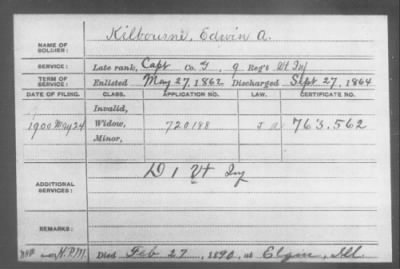 NAME OF SOLDIER: Kilbourne, Edwin A.
SERVICE: Late rank, Capt Co. I, 9 Reg't Vt Inf
TERM OF SERVICE: Enlisted May 27, 1862 Discharged Sept 27, 1864
DATE OF FILING. CLASS. APPLICATION NO. LAW. CERTIFICATE NO.
Invalid,
1900 May 24 Widow, 720188 763.562
Minor,
ADDITIONAL SERVICES: D 1 Vt Inf
REMARKS:
H.P.M. Died Feb 27, 1890, at Elgin, Ill.